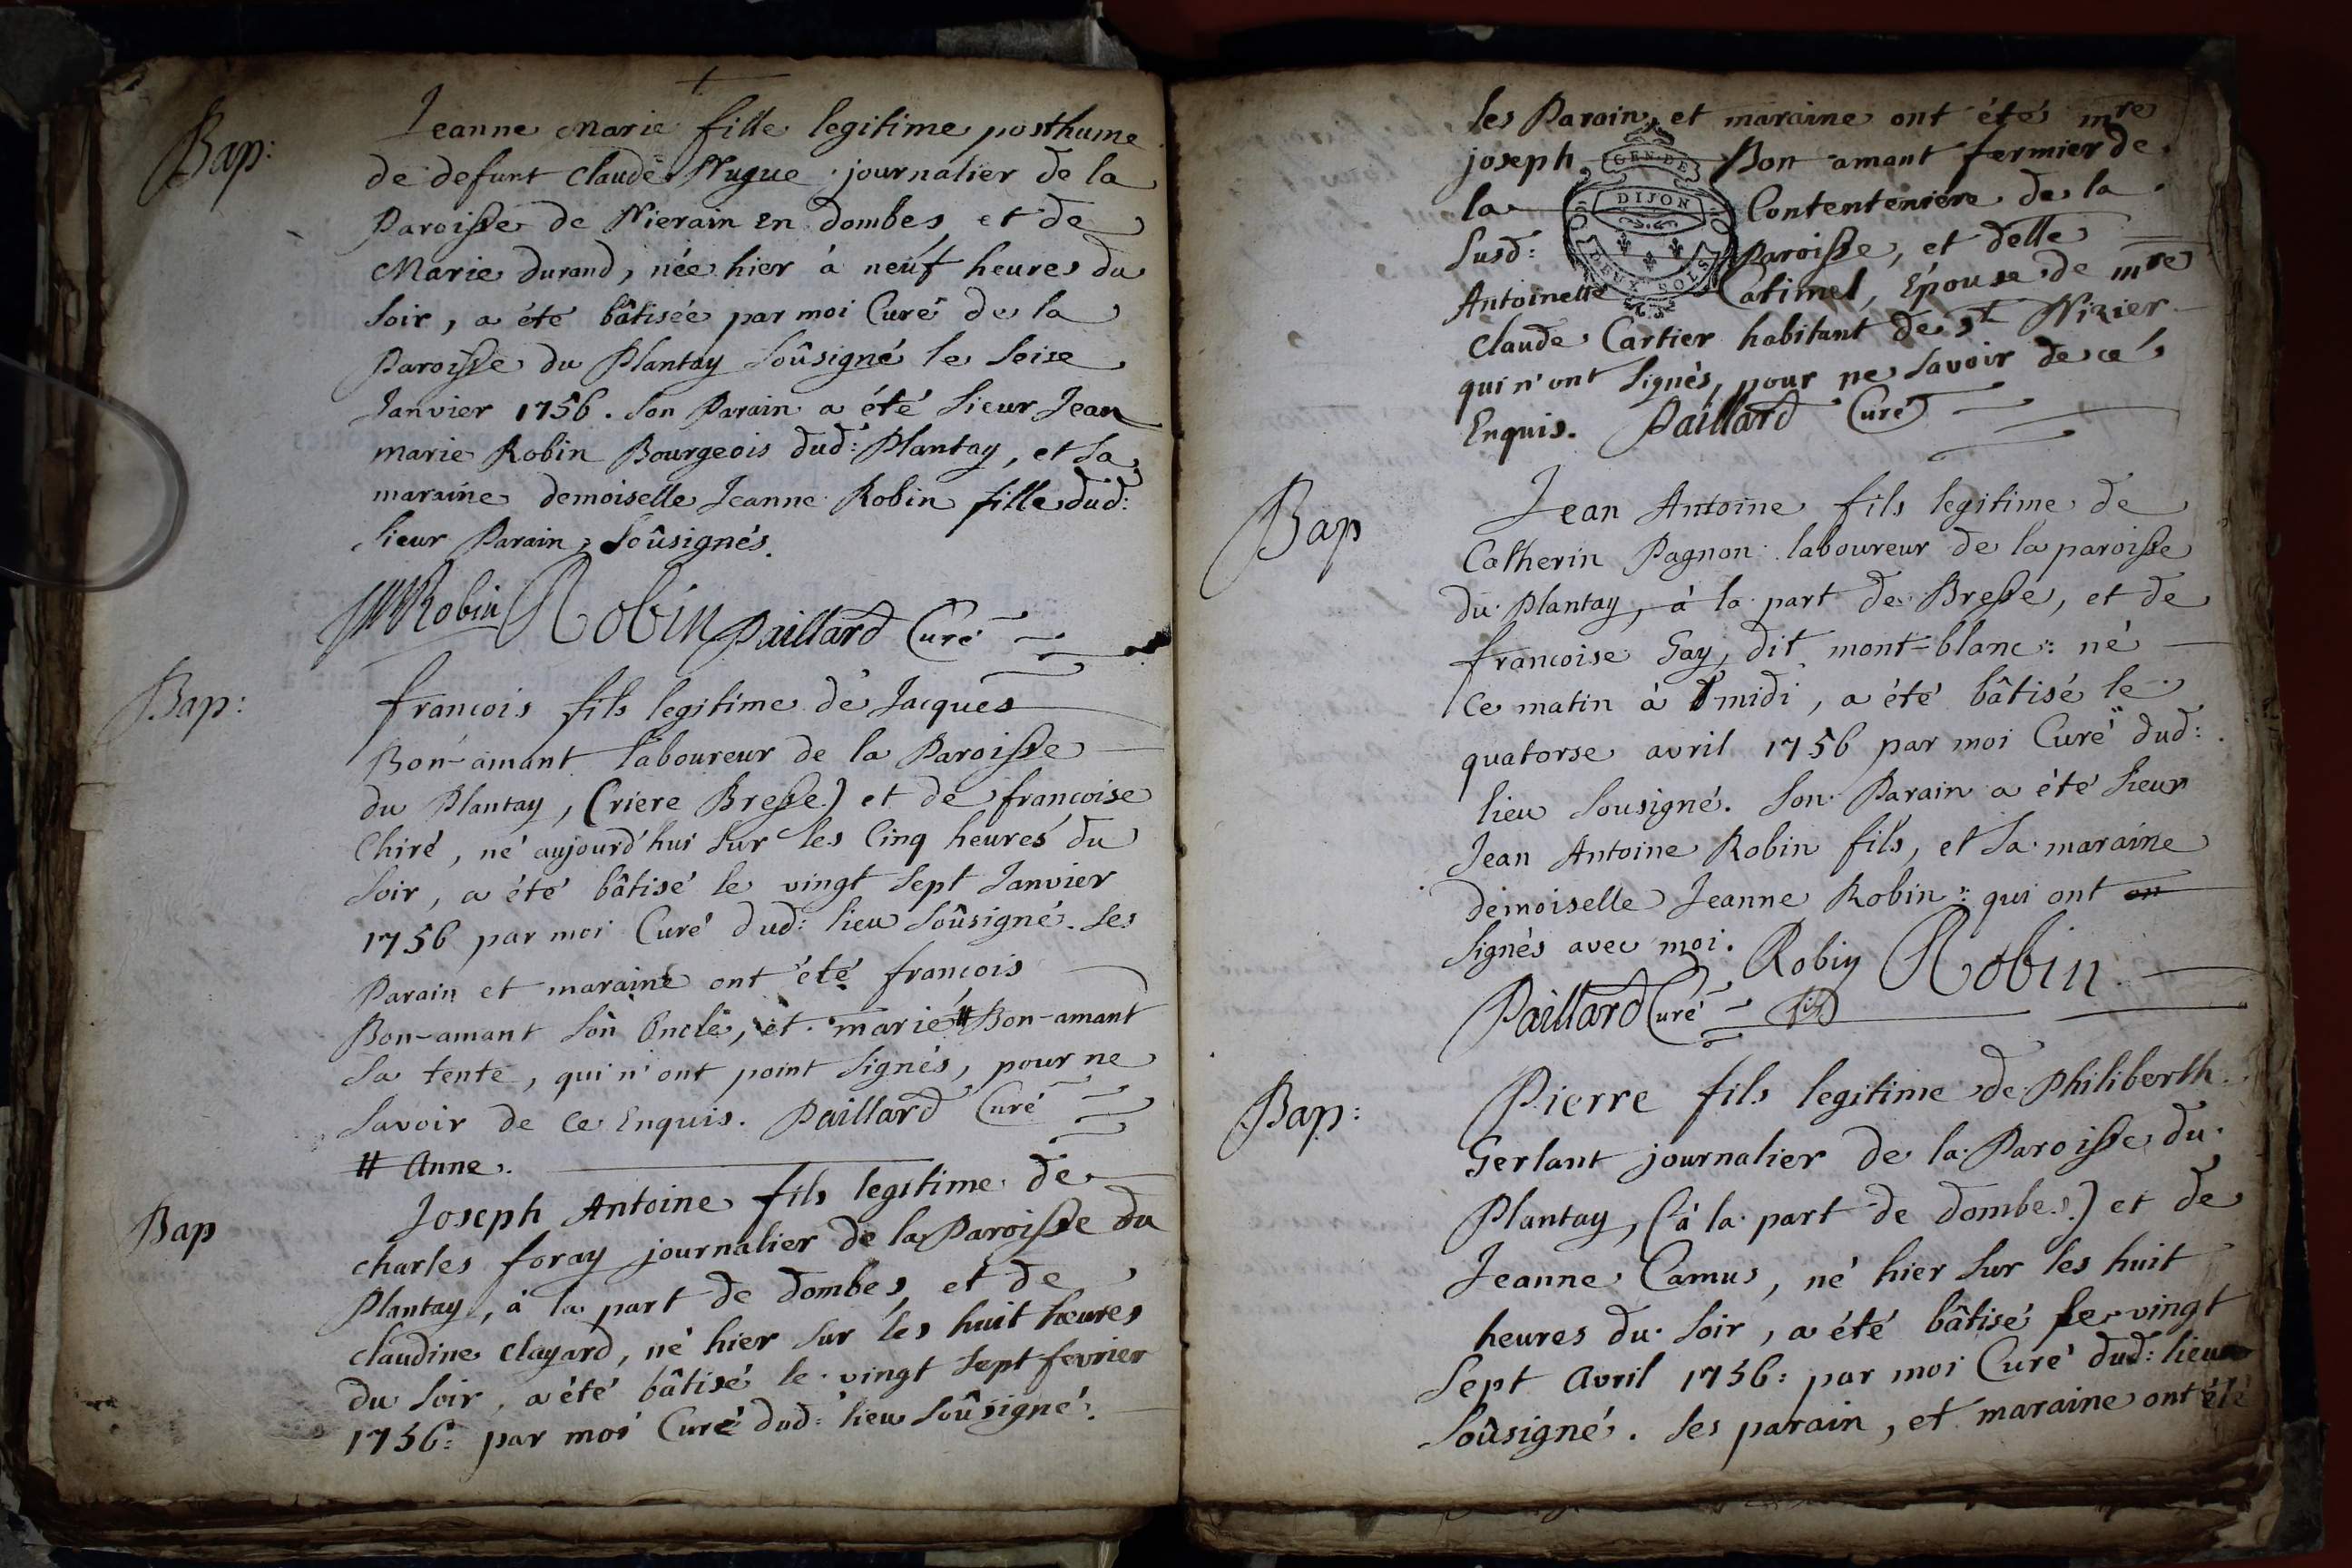 Bap:
Jeanne Marie fille legitime posthume
de defunt claude Nugue journalier de la
Paroisse de Nierain en dombes, et de
Marie durand, née hier à neuf heures du
soir, a été bâtisée par moi Curé de la
Paroisse du Plantay soûsigné le seise
Janvier 1756. son Parain a été sieur Jean
marie Robin Bourgeois dud: Plantay, et sa
maraine demoiselle Jeanne Robin fille dud:
sieur Parain, soûsignés.
JMRobin Robin Paillard Curé
Bap:
francois fils legitime de Jacques
Bon-amant laboureur de la Paroisse
du Plantay, (riere Bresse) et de francoise
Chiré, né aujourd'hui sur les Cinq heures du
soir, a été bâtisé le vingt sept Janvier
1756 par moi Curé dud: lieu soûsigné. ses
Parain et maraine ont été francois
Bon-amant son Oncle, et marie # Bon-amant
sa tente, qui n'ont point signés, pour ne
savoir de ce Enquis. Paillard Curé
# Anne.
Bap
Joseph Antoine fils legitime de
charles foray journalier de la Paroisse du
Plantay, à la part de dombes, et de
claudine clayard, né hier sur les huit heures
du soir, a été bâtisé le vingt sept fevrier
1756: par moi Curé dud: lieu soûsigné.
les Parain, et maraine ont étés mre
joseph Bon amant fermier de
la Contenteniere de la
susd: Paroisse, et delle
Antoinette Catimel, Épouse de mre
claude Cartier habitant de st Nizier
qui n'ont signés, pour ne savoir de ce
Enquis. Paillard Curé
GEN. DE
DIJON
DEUX SOLS
Bap
Jean Antoine fils legitime de
Catherin Pagnon laboureur de la paroisse
du Plantay, à la part de Bresse, et de
francoise Gay, dit mont-blanc: né
ce matin à midi, a été bâtisé le
quatorse avril 1756 par moi Curé dud:
lieu sousigné. son Parain a été sieur
Jean Antoine Robin fils, et sa maraine
demoiselle Jeanne Robin: qui ont on
signés avec moi. Robin Robin
Paillard Curé fils
Bap:
Pierre fils legitime de Philiberth
Gerlant journalier de la Paroisse du
Plantay, (à la part de dombes) et de
Jeanne Camus, né hier sur les huit
heures du soir, a été bâtisé le vingt
sept Avril 1756: par moi Curé dud: lieu
soûsigné. ses parain, et maraine ont été